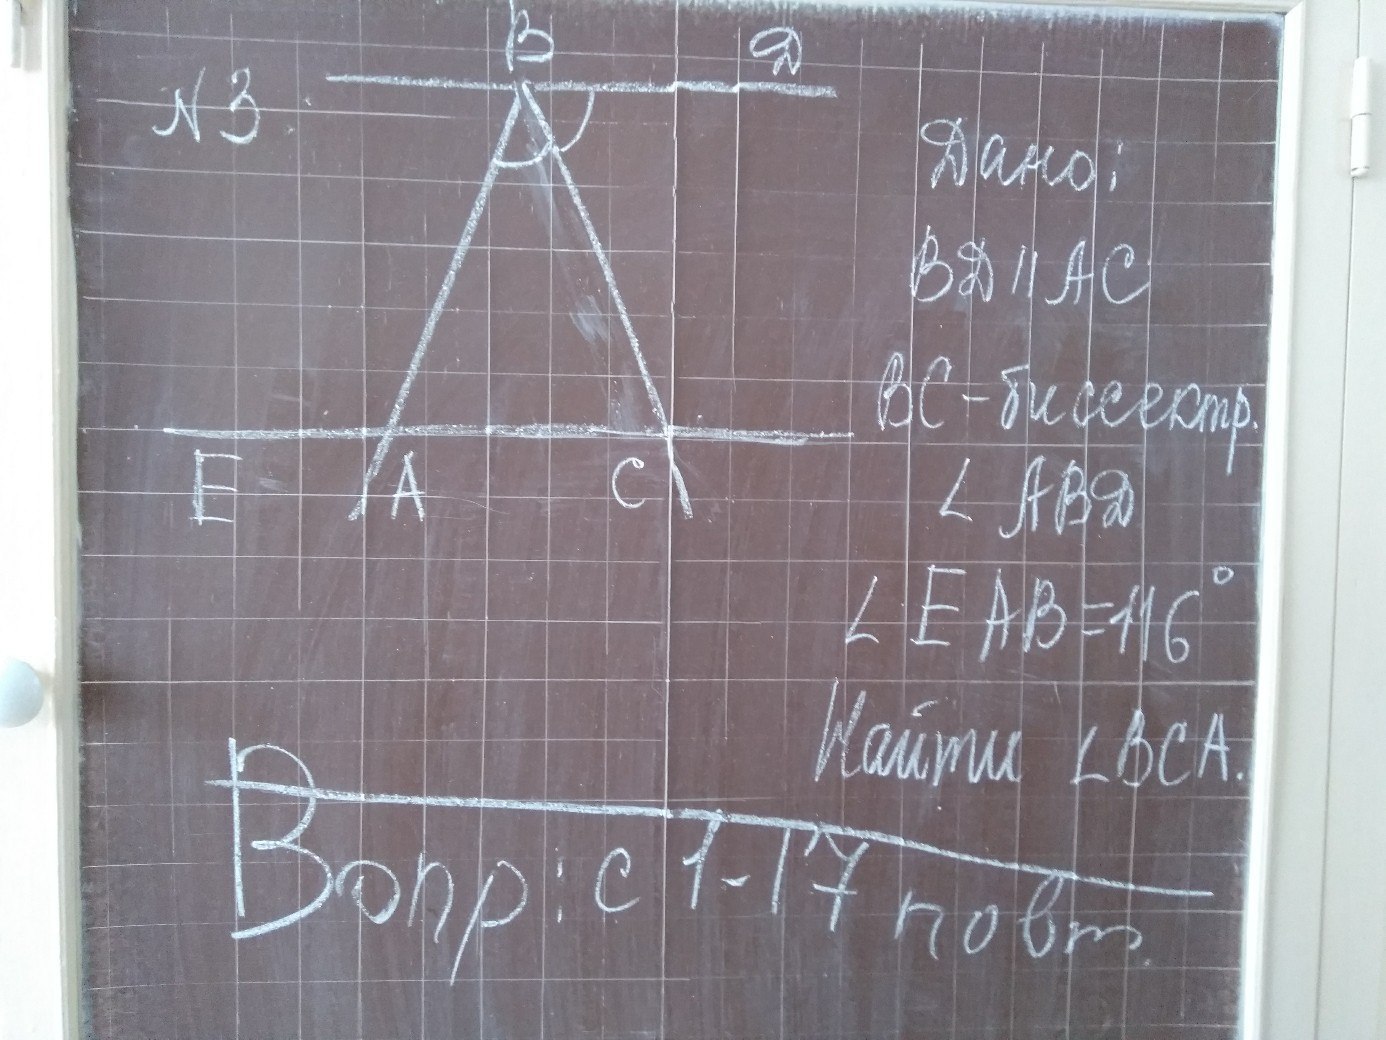 B D
N 3
E A C
Дано:
BD || AC
BC - биссектр.
∠ ABD
∠ EAB = 116°
Найти ∠BCA.
Вопр: с 1-17 повт.